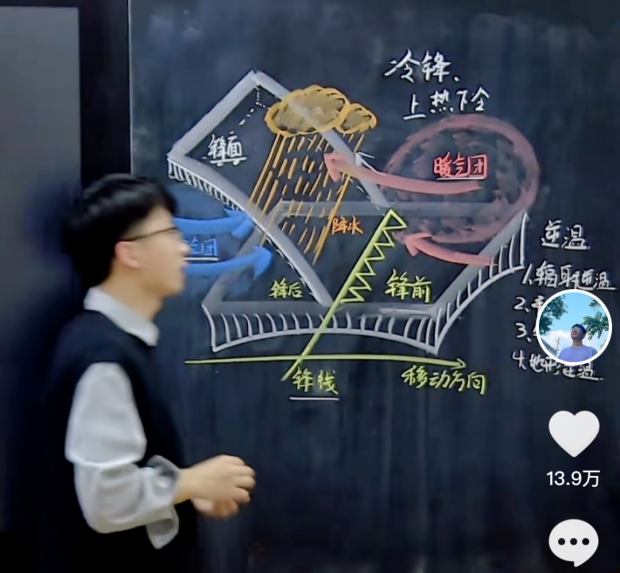 冷锋、
上热下冷
锋面
暖气团
气团
降水
逆温
锋后
锋前
1.辐射逆温
2.
3.
4.地形逆温
锋线
移动方向
13.9万